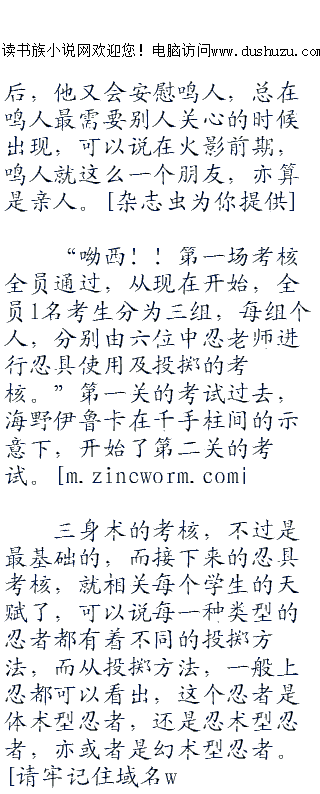 读书族小说网欢迎您！电脑访问www.dushuzu.com
后，他又会安慰鸣人，总在
鸣人最需要别人关心的时候
出现，可以说在火影前期，
鸣人就这么一个朋友，亦算
是亲人。[杂志虫为你提供]
“呦西！！第一场考核
全员通过，从现在开始，全
员1名考生分为三组，每组个
人，分别由六位中忍老师进
行忍具使用及投掷的考
核。”第一关的考试过去，
海野伊鲁卡在千手柱间的示
意下，开始了第二关的考
试。[m.zincworm.com|
三身术的考核，不过是
最基础的，而接下来的忍具
考核，就相关每个学生的天
赋了，可以说每一种类型的
忍者都有着不同的投掷方
法，而从投掷方法，一般上
忍都可以看出，这个忍者是
体术型忍者，还是忍术型忍
者，亦或者是幻术型忍者。
[请牢记住域名w